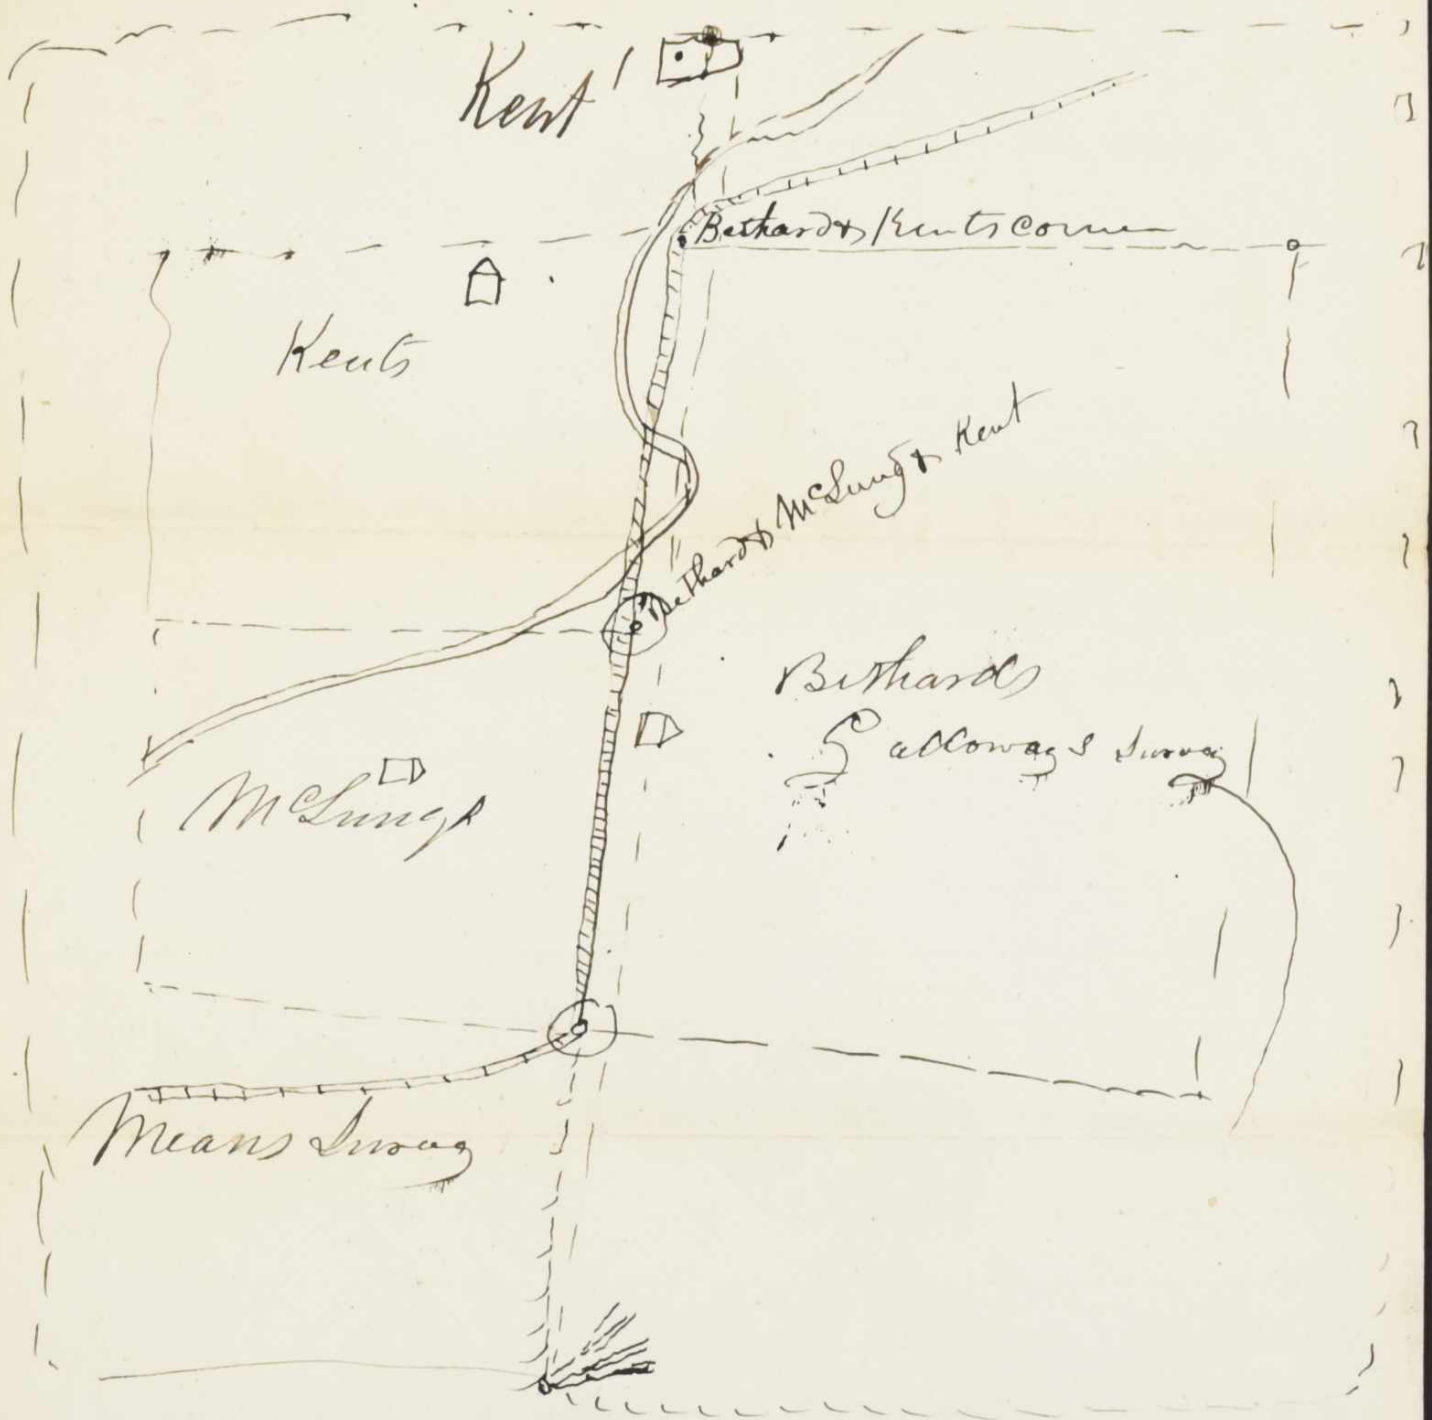 Kent
Bethard & Kents corner
Kents
Bethard & McLung & Kent
Bethards
Galloways Survey
McLungs
Means Survey